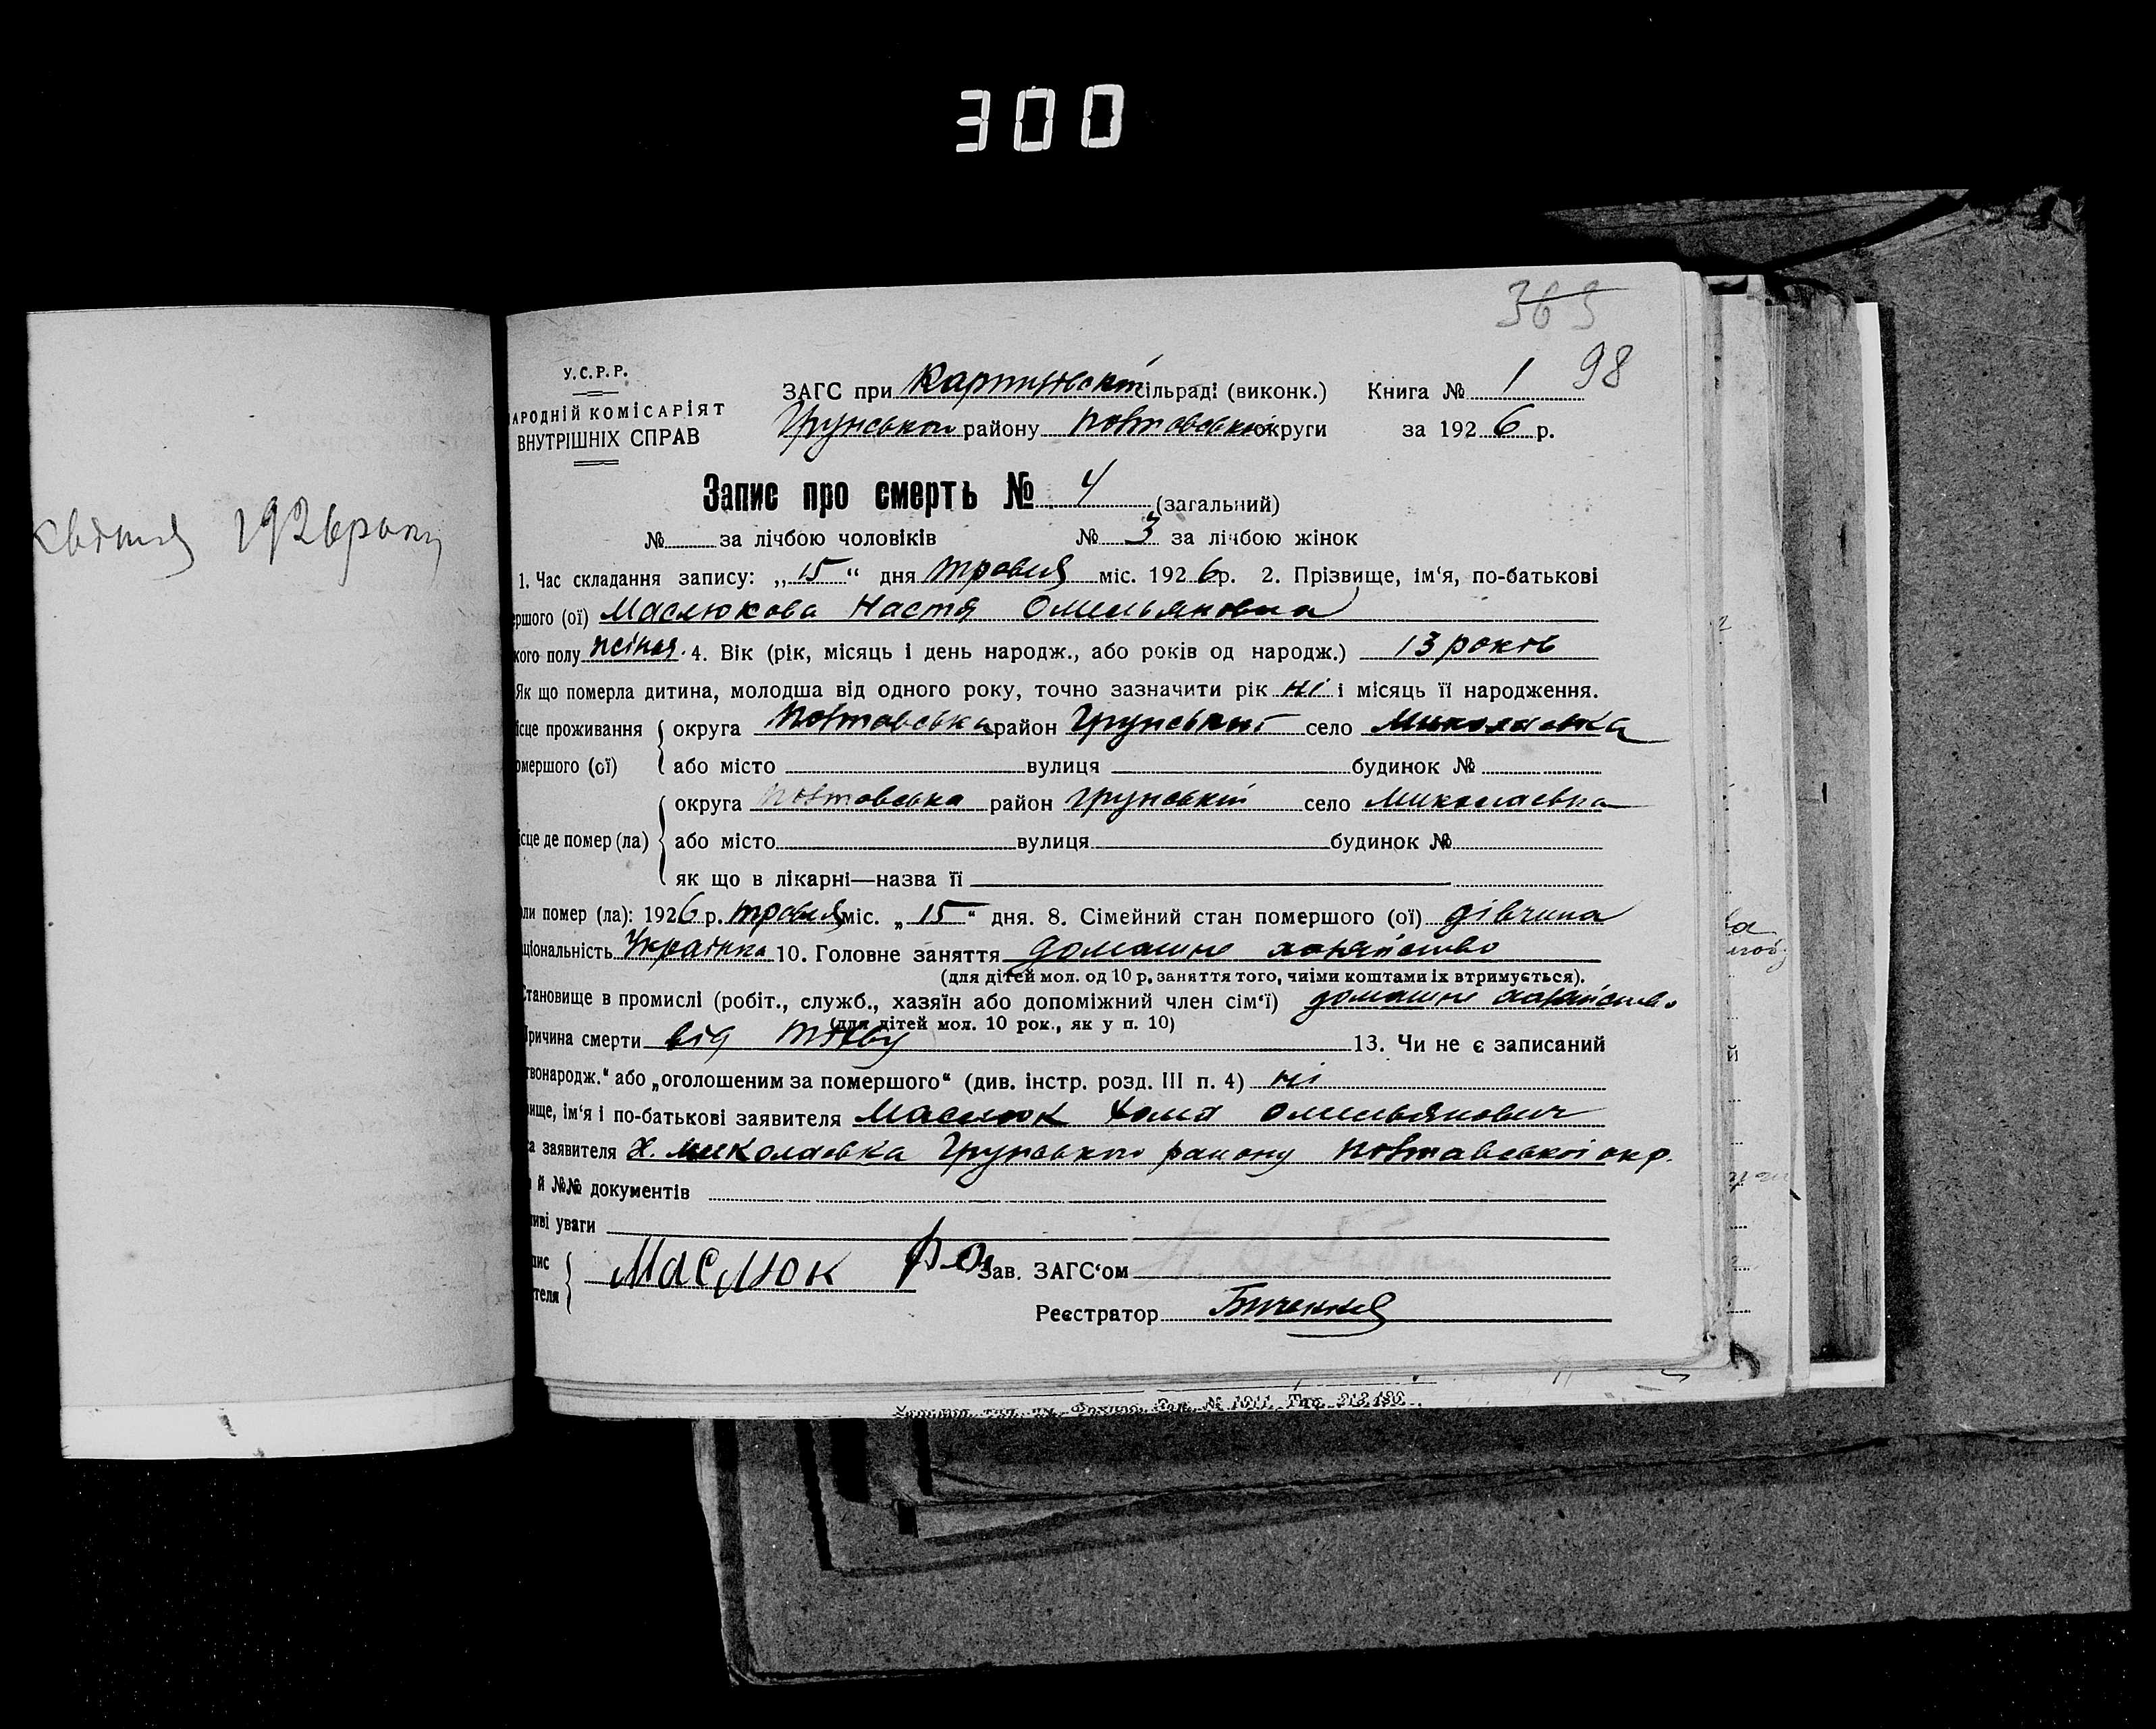 300
363
98
У.С.Р.Р.
АРОДНІЙ КОМІСАРІЯТ
ВНУТРІШНІХ СПРАВ
ЗАГС при сільраді (виконк.) Книга № 1
Грунського району Полтавської округи за 1926 р.
Запис про смерть № 4 (загальний)
№ за лічбою чоловіків № 3 за лічбою жінок
1. Час складання запису: „15“ дня травня міс. 1926 р. 2. Прізвище, ім‘я, по-батькові
ршого (ої) Маслюкова Настя Омельяновна
кого полу жіноч. 4. Вік (рік, місяць і день народж., або років од народж.) 13 років
Як що померла дитина, молодша від одного року, точно зазначити рік ні і місяць її народження.
ісце проживання округа Полтавська район Грунський село Миколаевка
омершого (ої) або місто вулиця будинок №
округа Полтавська район Грунський село Миколаевка
ісце де помер (ла) або місто вулиця будинок №
як що в лікарні—назва її
оли помер (ла): 1926 р. травня міс. „15“ дня. 8. Сімейний стан помершого (ої) дівчина
ціональність Українка 10. Головне заняття домашне хазяйство
(для дітей мол. од 10 р. заняття того, чиїми коштами їх втримується).
Становище в промислі (робіт., служб., хазяїн або допоміжний член сім‘ї) домашне хазяйство
(для дітей мол. 10 рок., як у п. 10)
Причина смерти від 13. Чи не є записаний
твонародж.“ або „оголошеним за помершого“ (див. інстр. розд. III п. 4) ні
вище, ім‘я і по-батькові заявителя Маслюк Хома Омельянович
са заявителя Х. Миколаевка Грунського району Полтавської окр.
й №№ документів
ливі уваги
пис
теля Маслюк Зав. ЗАГС‘ом
Реєстратор
квітня 1926 року